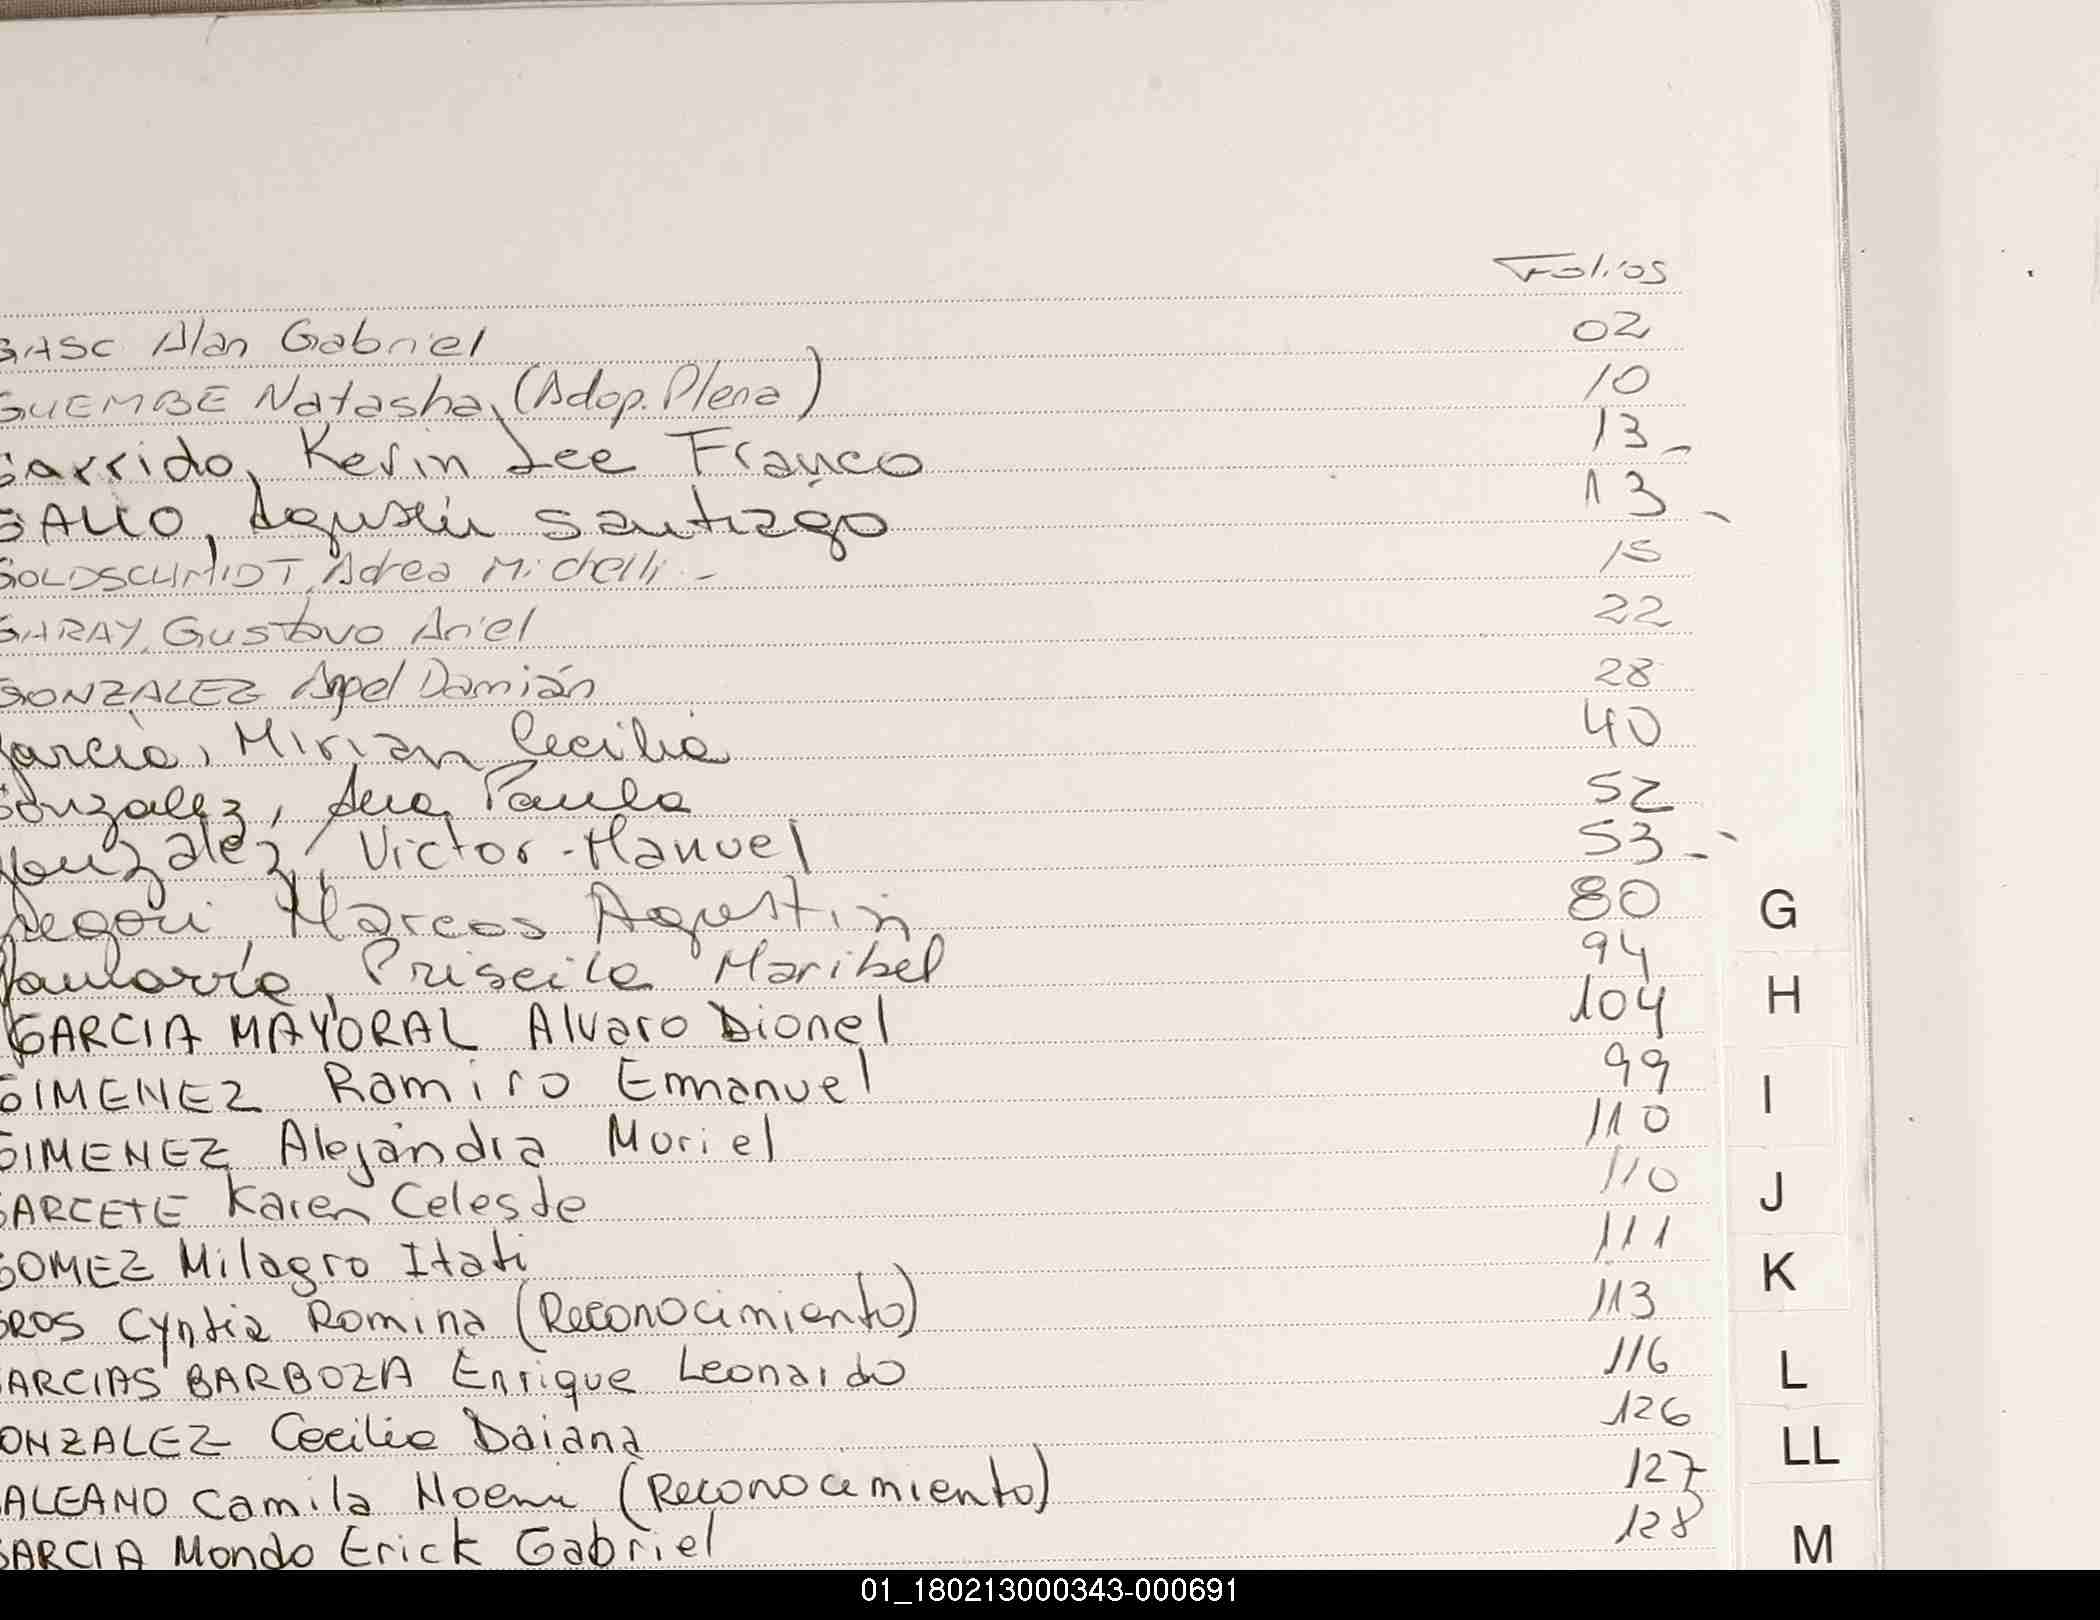 Folios
GASC Alan Gabriel 02
GUEMBE Natasha, (Adop. Plena) 10
Garrido, Kevin Lee Franco 13_
GALLO, Agustín Santiago 13
GOLDSCHMIDT, Adrea Michelli - 15
GARAY, Gustavo Ariel 22
GONZALEZ Angel Damián 28
Garcia, Mirian Cecilia 40
Gonzalez, Ana Paula 52
Gonzalez, Victor-Manuel 53_
Gregori, Marcos Agustin 80
Priscila Maribel 94
GARCIA MAYORAL Alvaro Dionel 104
GIMENEZ Ramiro Emmanuel 99
GIMENEZ Alejandra Muriel 110
GARCETE Karen Celeste 110
GOMEZ Milagro Itati 111
GROS Cyntia Romina (Reconocimiento) 113
GARCIAS BARBOZA Enrique Leonardo 116
GONZALEZ Cecilia Daiana 126
GALEANO Camila Noemi (Reconocimiento) 127
GARCIA Mondo Erick Gabriel 128
G
H
I
J
K
L
LL
M
01_180213000343-000691